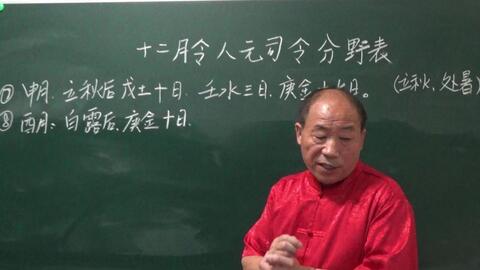 十二月令人元司令分野表
① 申月. 立秋后戊土十日. 壬水三日. 庚金十 日。 (立秋、处暑)
③ 酉月: 白露后. 庚金十日.